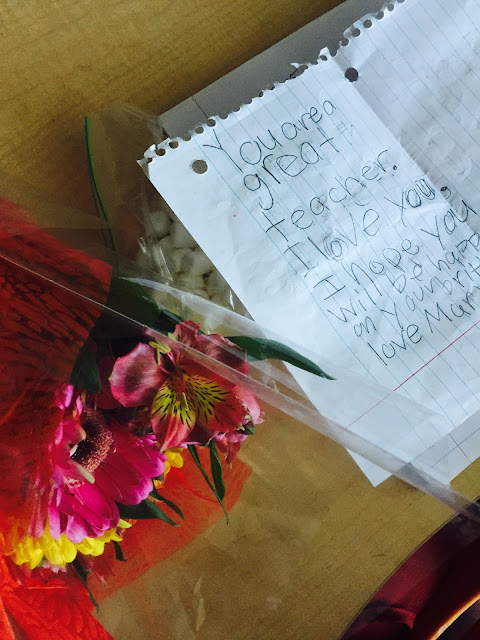 You are a
great
teacher.
I love you.
I hope you
will be happ
on your
love